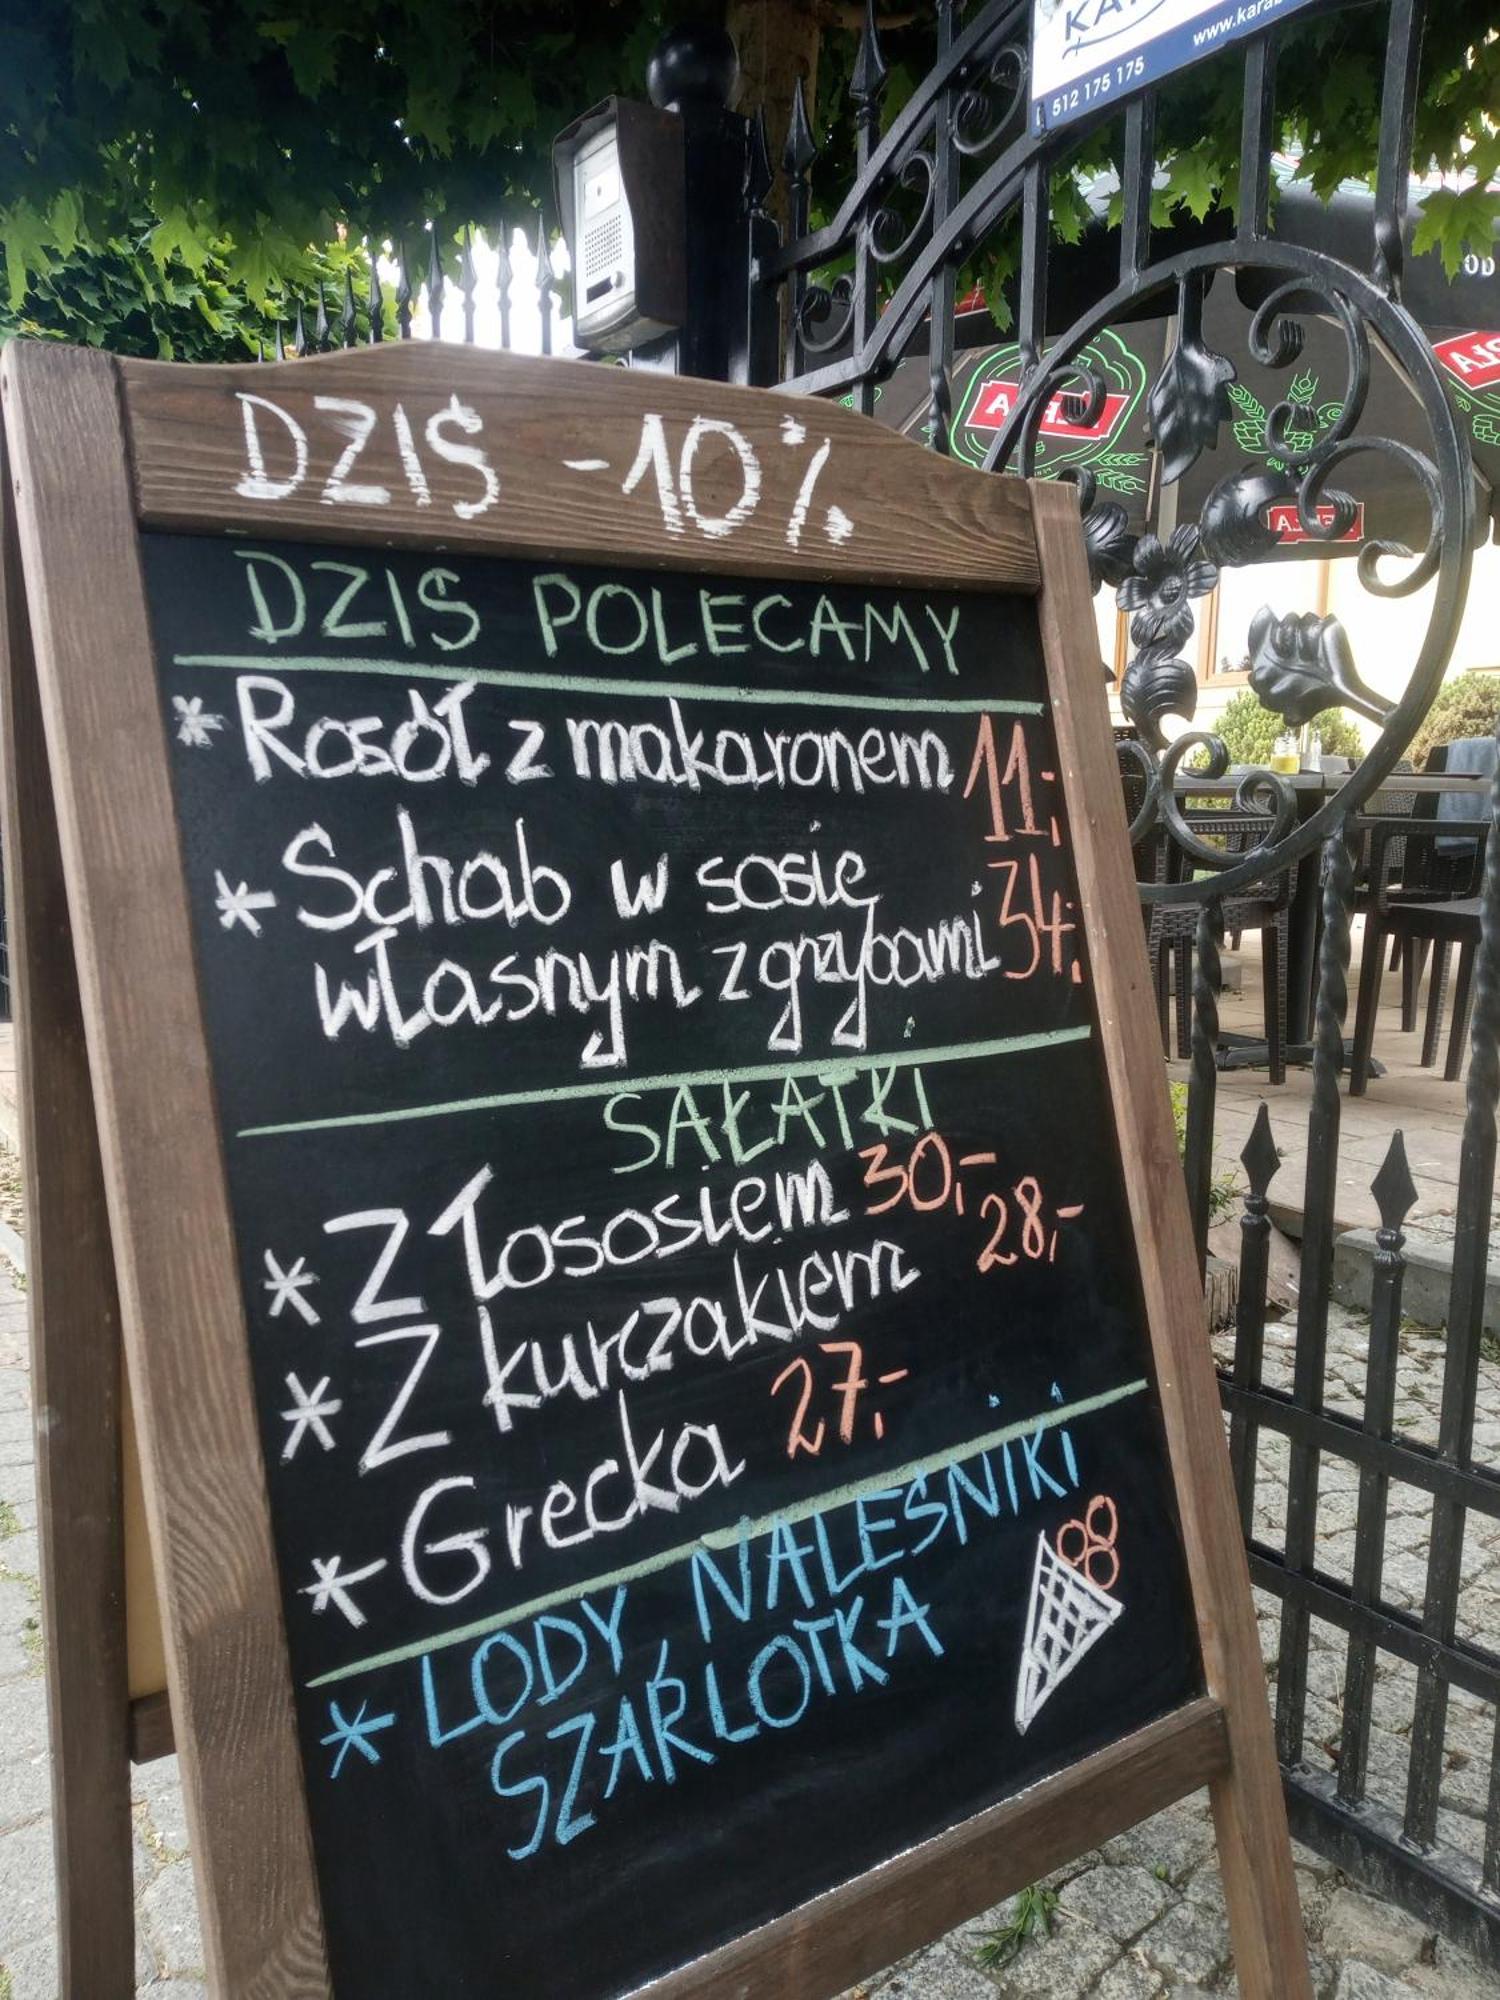 www.karab
512 175 175
DZIŚ -10%
DZIŚ POLECAMY
* Rosół z makaronem 11,-
* Schab w sosie
własnym z grzybami 34,-
SAŁATKI
* Z łososiem 30,-
* Z kurczakiem 28,-
* Grecka 27,-
* LODY, NALEŚNIKI
SZARLOTKA